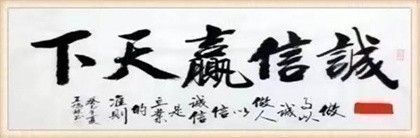 誠信贏天下
做事以诚做人以信诚信是立業的准则